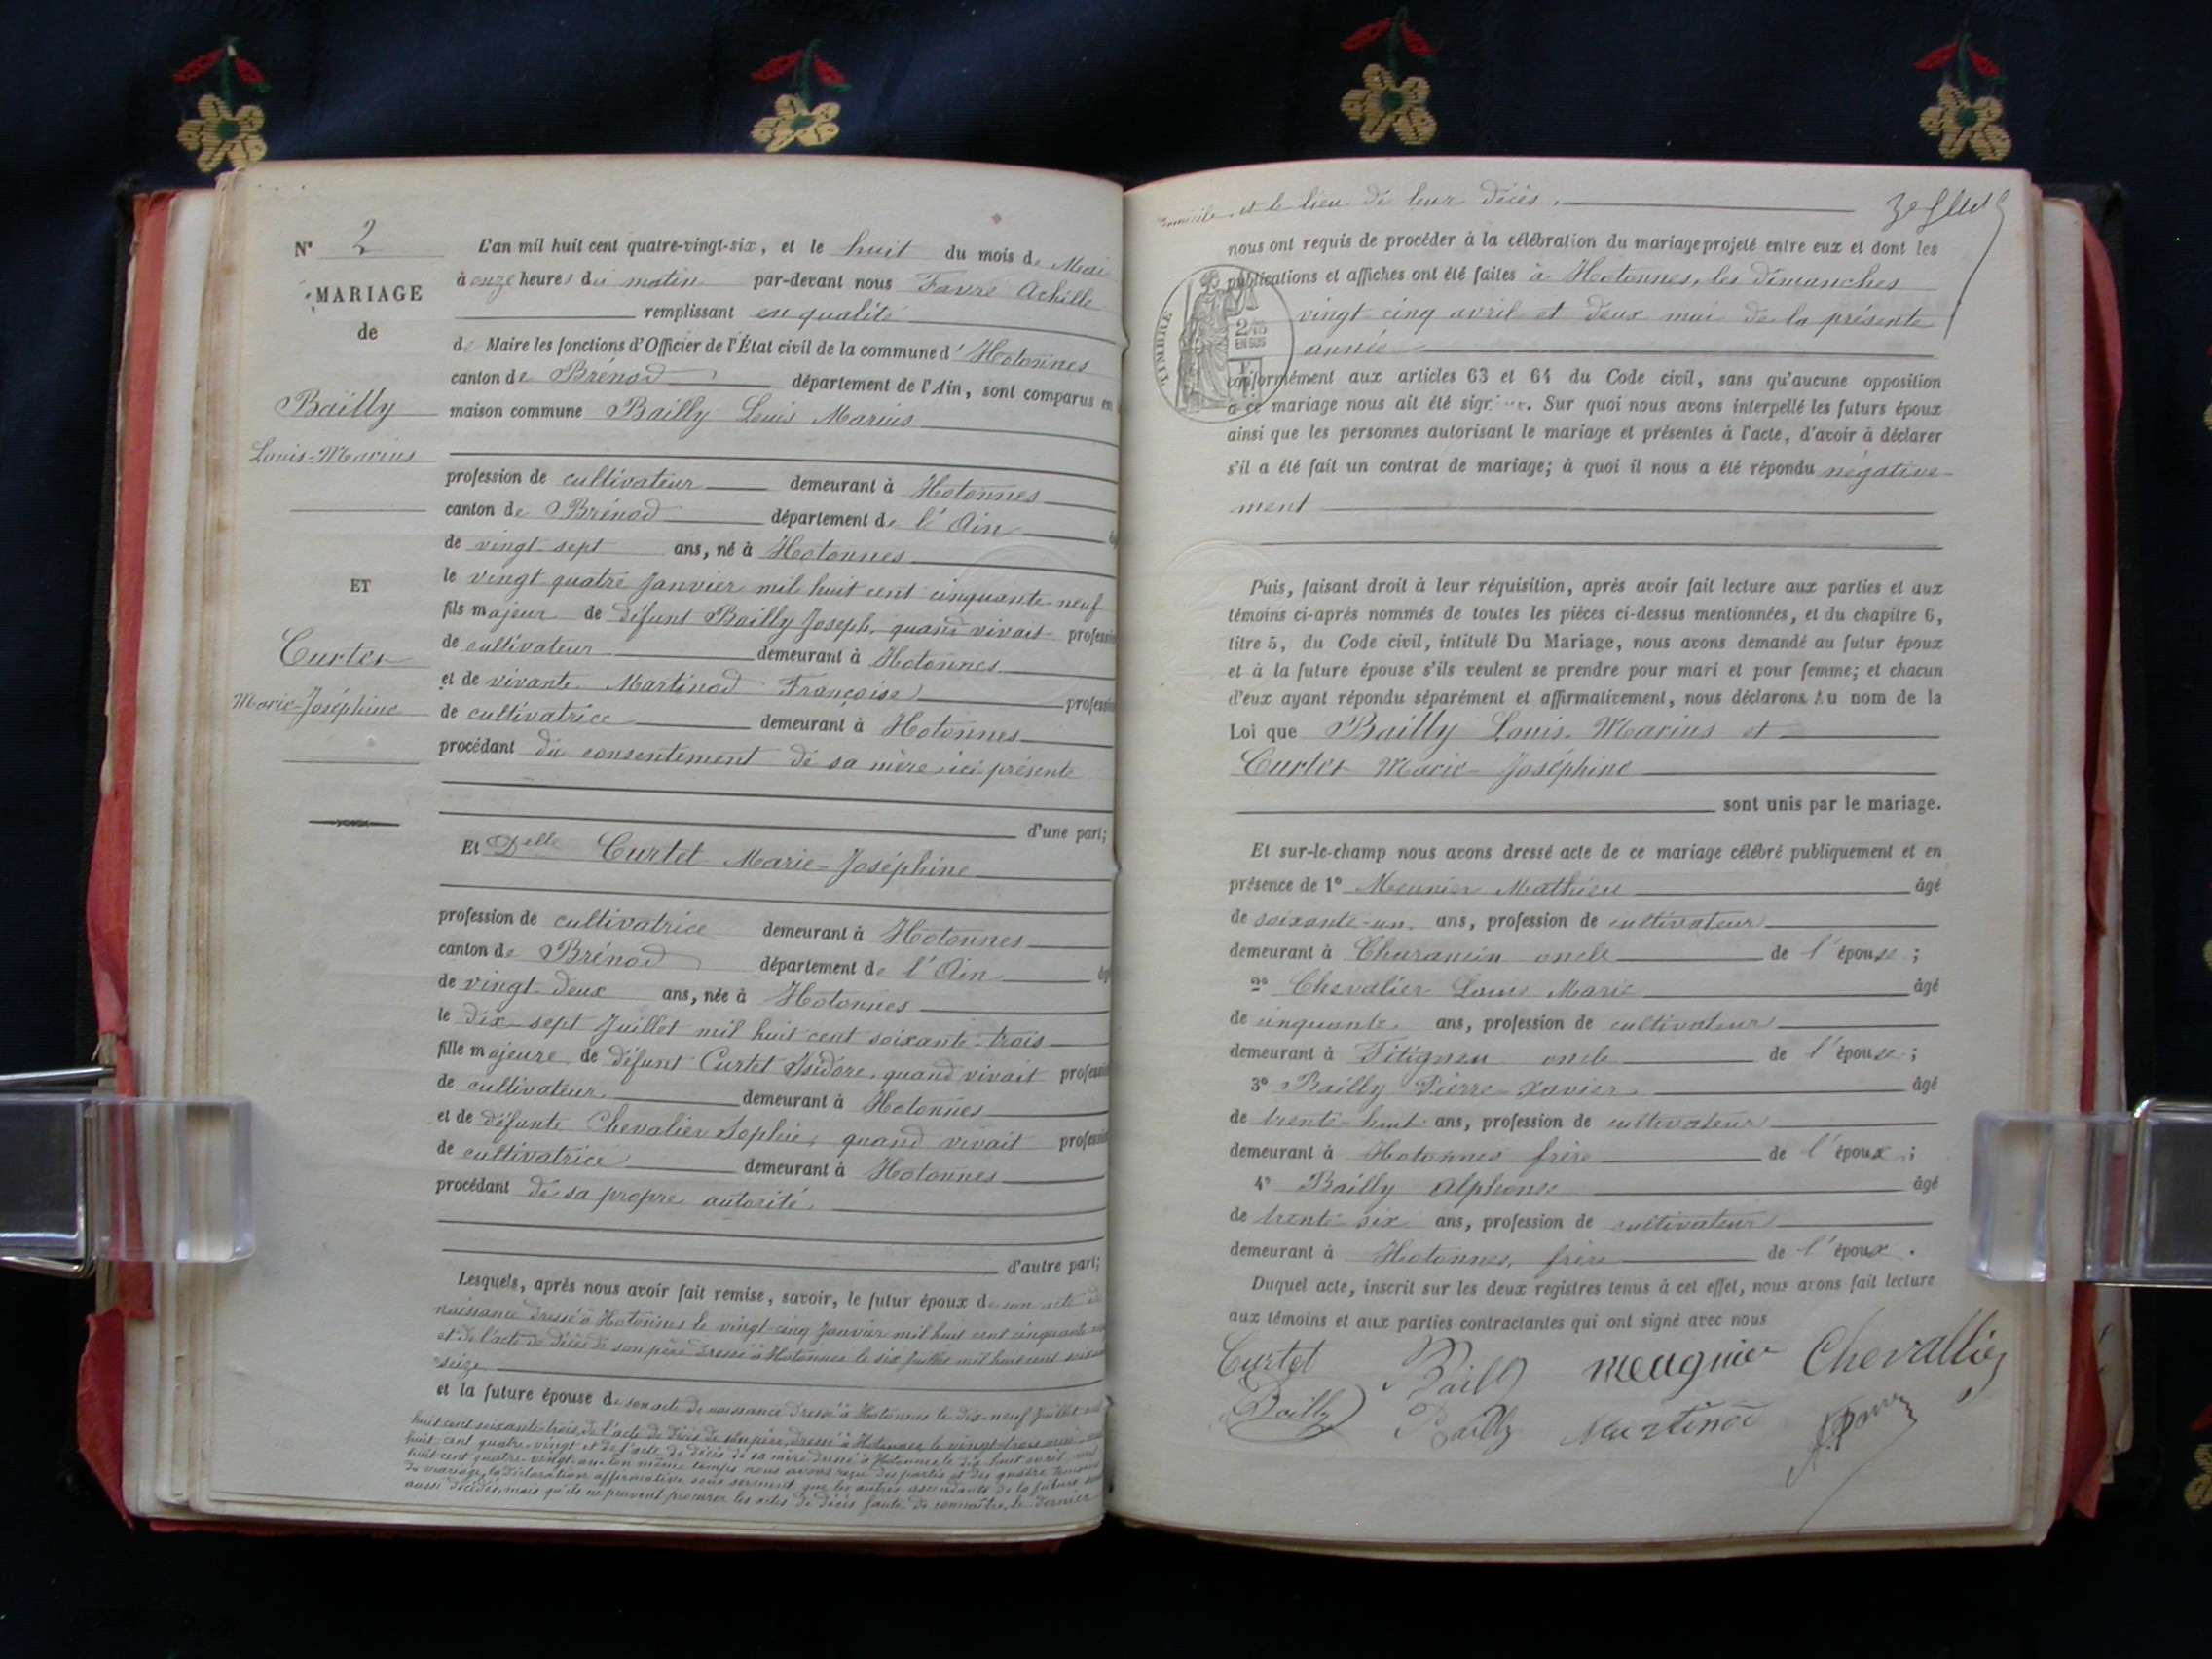 N° 2
MARIAGE
de
Bailly
Louis-Marius
ET
Curtet
Marie-Joséphine
L'an mil huit cent quatre-vingt-six, et le huit du mois de Mai
à onze heures du matin par-devant nous Favre Achille
remplissant en qualité
de Maire les fonctions d'Officier de l'État civil de la commune d' Hotonnes
canton de Brénod département de l'Ain, sont comparus en
maison commune Bailly Louis Marius
profession de cultivateur demeurant à Hotonnes
canton de Brénod département de l'Ain
de vingt-sept ans, né à Hotonnes
le vingt quatre Janvier mil huit cent cinquante-neuf
fils majeur de défunt Bailly Joseph, quand vivait professio
de cultivateur demeurant à Hotonnes
et de vivante Martinod Françoise professio
de cultivatrice demeurant à Hotonnes
procédant du consentement de sa mère ici présente
d'une part;
Et Delle Curtet Marie-Joséphine
profession de cultivatrice demeurant à Hotonnes
canton de Brénod département de l'Ain
de vingt-deux ans, née à Hotonnes
le dix-sept Juillet mil huit cent soixante-trois
fille majeure de défunt Curtet Isidore, quand vivait professio
de cultivateur demeurant à Hotonnes
et de défunte Chevalier Sophie, quand vivait professio
de cultivatrice demeurant à Hotonnes
procédant de sa propre autorité.
d'autre part;
Lesquels, après nous avoir fait remise, savoir, le futur époux de son acte de
naissance dressé à Hotonnes le vingt-cinq Janvier mil huit cent cinquante
et de l'acte de décès de son père dressé à Hotonnes le six Juillet mil huit cent
seize
et la future épouse de son acte de naissance dressé à Hotonnes le dix-neuf Juillet mil
huit cent soixante-trois, de l'acte de décès de son père, dressé à Hotonnes le vingt-trois
huit cent quatre-vingt et de l'acte de décès de sa mère dressé à Hotonnes le dix huit avril mil
huit cent quatre-vingt-un. En même temps nous avons reçu des parties et des quatre témoins
du mariage, la déclaration affirmative sous serment que les autres ascendants de la future sont
aussi décédés, mais qu'ils ne peuvent procurer les actes de décès faute de connaître le dernier
domicile et le lieu de leur décès.
nous ont requis de procéder à la célébration du mariage projeté entre eux et dont les
publications et affiches ont été faites à Hotonnes, les dimanches
vingt-cinq avril et deux mai de la présente
année
TIMBRE
2/10
EN SUS
conformément aux articles 63 et 64 du Code civil, sans qu'aucune opposition
à ce mariage nous ait été signifiée. Sur quoi nous avons interpellé les futurs époux
ainsi que les personnes autorisant le mariage et présentes à l'acte, d'avoir à déclarer
s'il a été fait un contrat de mariage; à quoi il nous a été répondu négative-
ment
Puis, faisant droit à leur réquisition, après avoir fait lecture aux parties et aux
témoins ci-après nommés de toutes les pièces ci-dessus mentionnées, et du chapitre 6,
titre 5, du Code civil, intitulé Du Mariage, nous avons demandé au futur époux
et à la future épouse s'ils veulent se prendre pour mari et pour femme; et chacun
d'eux ayant répondu séparément et affirmativement, nous déclarons Au nom de la
Loi que Bailly Louis Marius et
Curtet Marie-Joséphine
sont unis par le mariage.
Et sur-le-champ nous avons dressé acte de ce mariage célébré publiquement et en
présence de 1° Meunier Mathieu âgé
de soixante-un ans, profession de cultivateur
demeurant à Charancin oncle de l'épouse;
2° Chevalier Louis Marie âgé
de cinquante ans, profession de cultivateur
demeurant à Fitignieu oncle de l'épouse;
3° Bailly Pierre-Xavier âgé
de trente-huit ans, profession de cultivateur
demeurant à Hotonnes frère de l'époux;
4° Bailly Alphonse âgé
de trente-six ans, profession de cultivateur
demeurant à Hotonnes, frère de l'époux.
Duquel acte, inscrit sur les deux registres tenus à cet effet, nous avons fait lecture
aux témoins et aux parties contractantes qui ont signé avec nous
Curtet Bailly meugnier Chevallier
Bailly Bailly Martinod